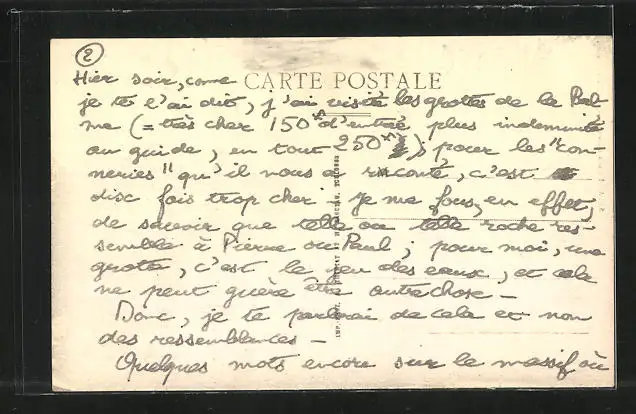 2
Hier soir, come CARTE POSTALE
je te l'ai dit, j'ai visité les grottes de la Bal-
me (= très cher 150 f d'entrée, plus indemnité
au guide, en tout 250 f); pour les "con-
neries" qu'il nous a raconté, c'est
disc fois trop cher. je me fous, en effet,
de savoir que telle ou telle roche res-
semble à Pierre ou Paul; pour moi, une
grotte, c'est le jeu des eaux, et cela
ne peut guère être autre chose —
Donc, je te parlerai de cela et non
des ressemblances —
Quelques mots encore sur le massif où